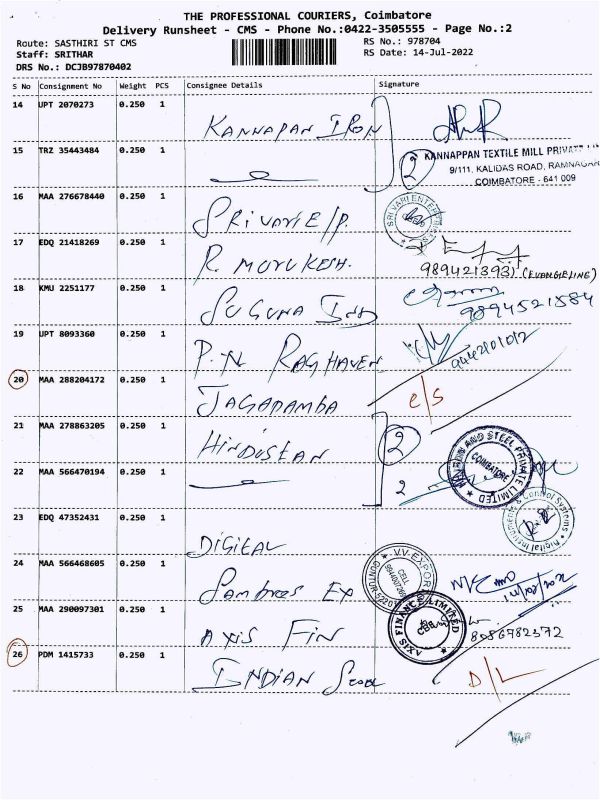 THE PROFESSIONAL COURIERS, Coimbatore
Delivery Runsheet - CMS - Phone No.:0422-3505555 - Page No.:2
Route: SASTHIRI ST CMS RS No.: 978704
Staff: SRITHAR RS Date: 14-Jul-2022
DRS No.: DCJB97870402
S No Consignment No Weight PCS Consignee Details Signature
14 UPT 2070273 0.250 1 KANNAPAN IRON
15 TRZ 35443484 0.250 1 2 KANNAPPAN TEXTILE MILL PRIVATE
9/111, KALIDAS ROAD, RAMNAGAR
COIMBATORE - 641 009
16 MAA 276678440 0.250 1 SRIVARI E/P. SRI VARI ENTERPRISES
17 EDQ 21418269 0.250 1 R. MURUKESH. 9894213931 (EVANGELINE)
18 KMU 2251177 0.250 1 SUGUNA IND 9894521584
19 UPT 8093360 0.250 1 P.N RAGHAVEN 9442101012
20 MAA 288204172 0.250 1 JAGADAMBA e/s
21 MAA 278863205 0.250 1 HINDUSTAN 2
22 MAA 566470194 0.250 1 2 AND STEEL PRIVATE LIMITED COIMBATORE
23 EDQ 47352431 0.250 1 DIGITAL Digital Instruments & Control Systems
24 MAA 566468605 0.250 1 Ex V.V EXPORT CELL
25 MAA 290097301 0.250 1 AXIS FIN AXIS FINANCE LIMITED CBE 8056782372
26 PDM 1415733 0.250 1 INDIAN D/L